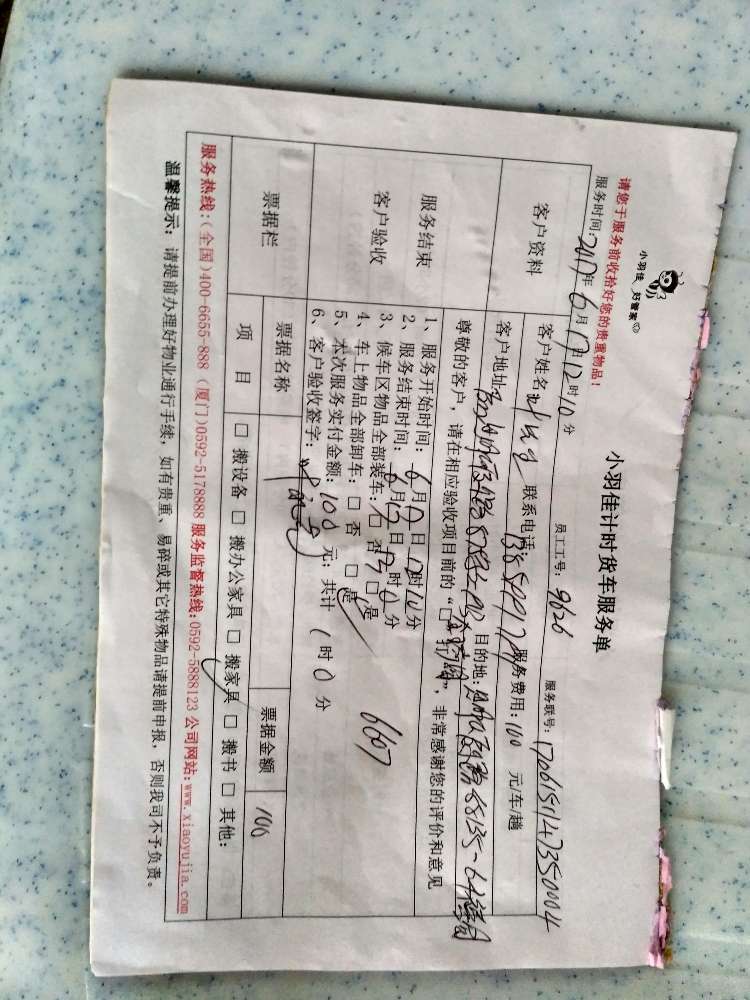 小羽佳 好管家
小羽佳计时货车服务单
请您于服务前收拾好您的贵重物品！
员工工号：9626 服务联号：1706151147350004
服务时间：2017年6月17日12时10分
客户资料
客户姓名 联系电话： 服务费用：100 元/车/趟
客户地址 目的地：
尊敬的客户，请在相应验收项目前的“□打√”，非常感谢您的评价和意见
服务结束
客户验收
1、服务开始时间：6月17日12时10分
2、服务结束时间：6月17日13时10分
3、候车区物品全部装车：□否 □是
4、车上物品全部卸车：□否 □是
5、本次服务实付金额：100元；共计 1时0分
6、客户验收签字：
6607
票据栏
票据名称 票据金额 100
项目 □搬设备 □搬办公家具 □搬家具 □搬书 □其他：
服务热线：(全国)400-6655-888 (厦门)0592-5178888 服务监督热线：0592-5888123 公司网站：www.xiaoyujia.com
温馨提示：请提前办理好物业通行手续，如有贵重、易碎或其它特殊物品请提前申报，否则我司不予负责。